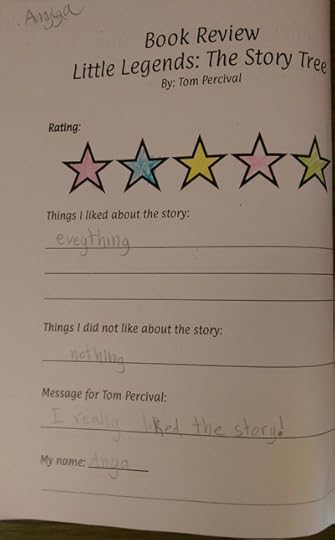 Anyya
Book Review
Little Legends: The Story Tree
By: Tom Percival
Rating:
Things I liked about the story:
eveything
Things I did not like about the story:
nothing
Message for Tom Percival:
I really liked the story!
My name: Anya